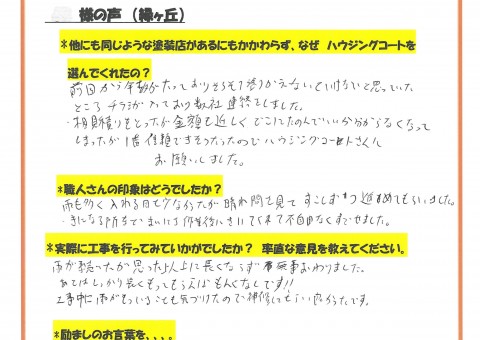 様の声 (緑ヶ丘)
*他にも同じような塗装店があるにもかかわらず、なぜ ハウジングコートを
選んでくれたの?
前回から年数がたっておりそろそろ塗りかえないといけないと思っていた
ところ チラシが入っており数社連絡しました。
・相見積りをとったが金額も近しくどこにたのんでいいか分からなくなって
しまったが1番信頼できそうだったのでハウジングコートさんに
お願いしました。
*職人さんの印象はどうでしたか?
雨も多く入れる日も少なかったが晴れ間を見てすこしずつ進めてもらいました。
・きになる所を
作業後に
きいてくれて不自由なくすごせました。
*実際に工事を行ってみていかがでしたか? 率直な意見を教えてください。
雨が続いたが思った以上に長くならず無事おわりました。
あとはしっかり長くもってもらえばもんくなしです!!
工事中に雨がもっていることも気づけたので補修してもらい良かったです。
*励ましのお言葉を、、、。